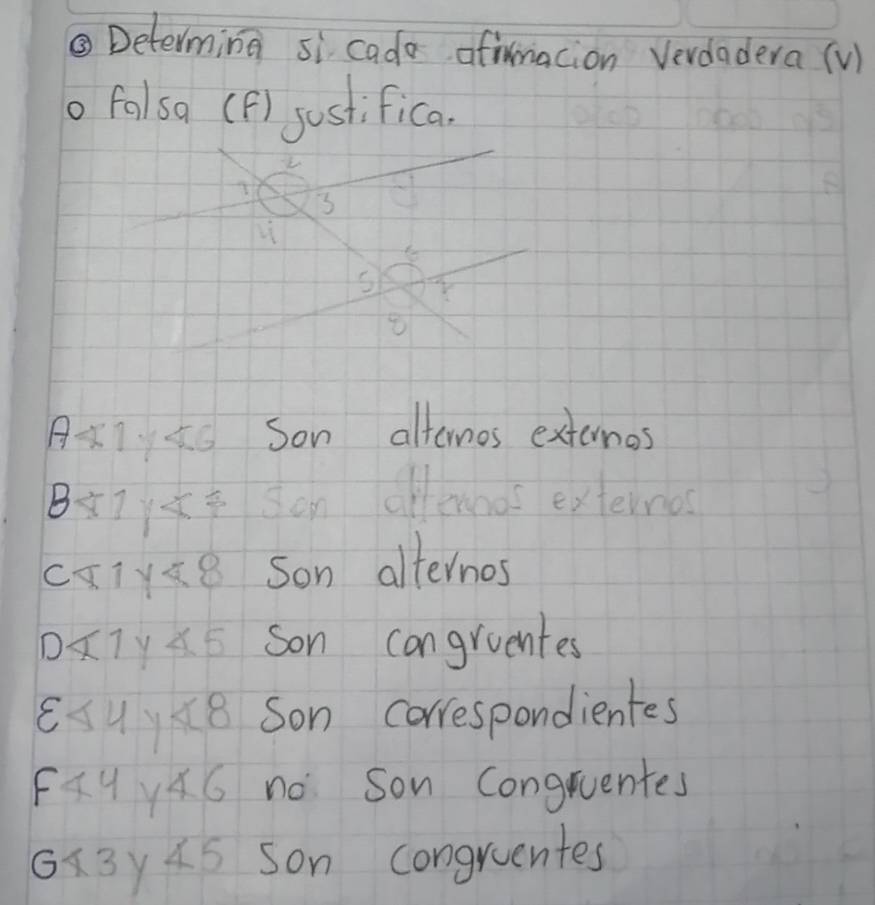 ③ Determina si cada afirmacion Verdadera (V)
o falsa (F) justifica.
1 2 3
4
5 6 7
8
A ∢1 y ∢6 Son alternos externos
B ∢1 y ∢7 Son alternos externos
C ∢1 y ∢8 Son alternos
D ∢1 y ∢5 Son congruentes
E ∢4 y ∢8 Son correspondientes
F ∢4 y ∢6 no son congruentes
G ∢3 y ∢5 Son congruentes